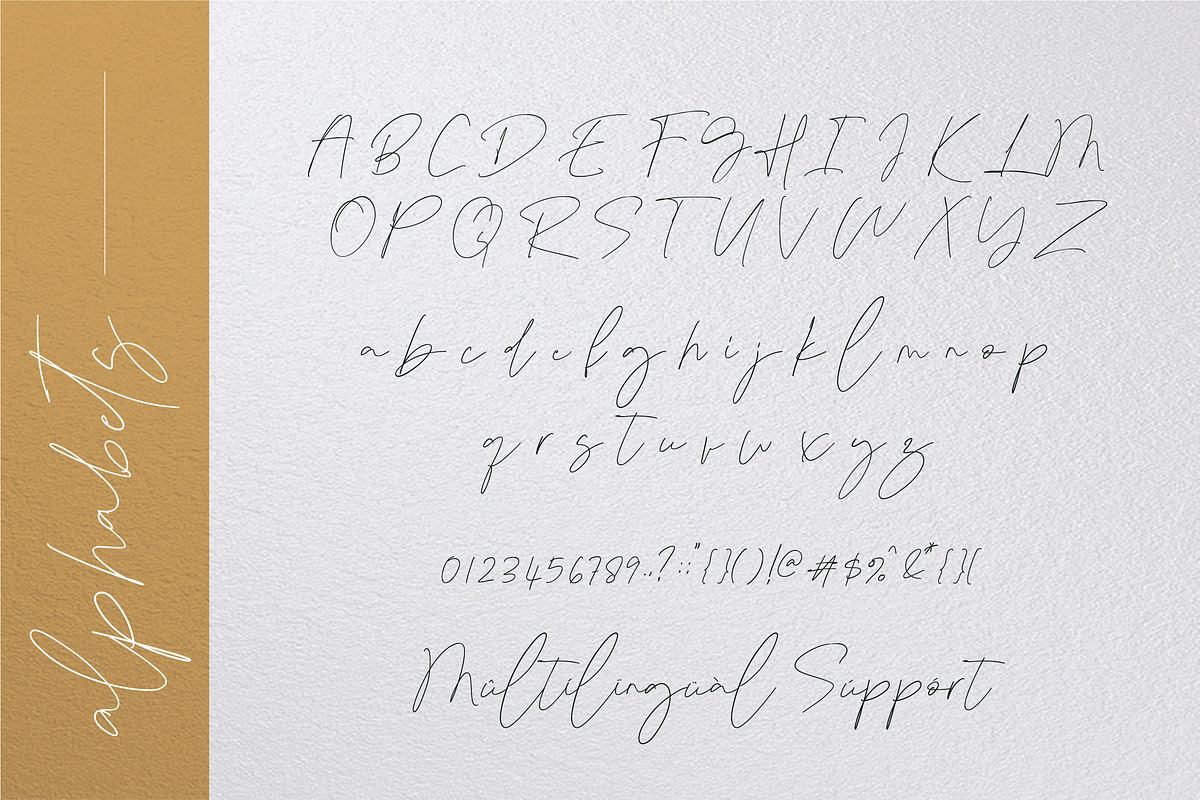 alphabets
A B C D E F G H I J K L M
O P Q R S T U V W X Y Z
a b c d e f g h i j k l m n o p
q r s t u v w x y z
0123456789..?:;"{}()!@#$%^&*{}(
Mültilingüàl Süppört